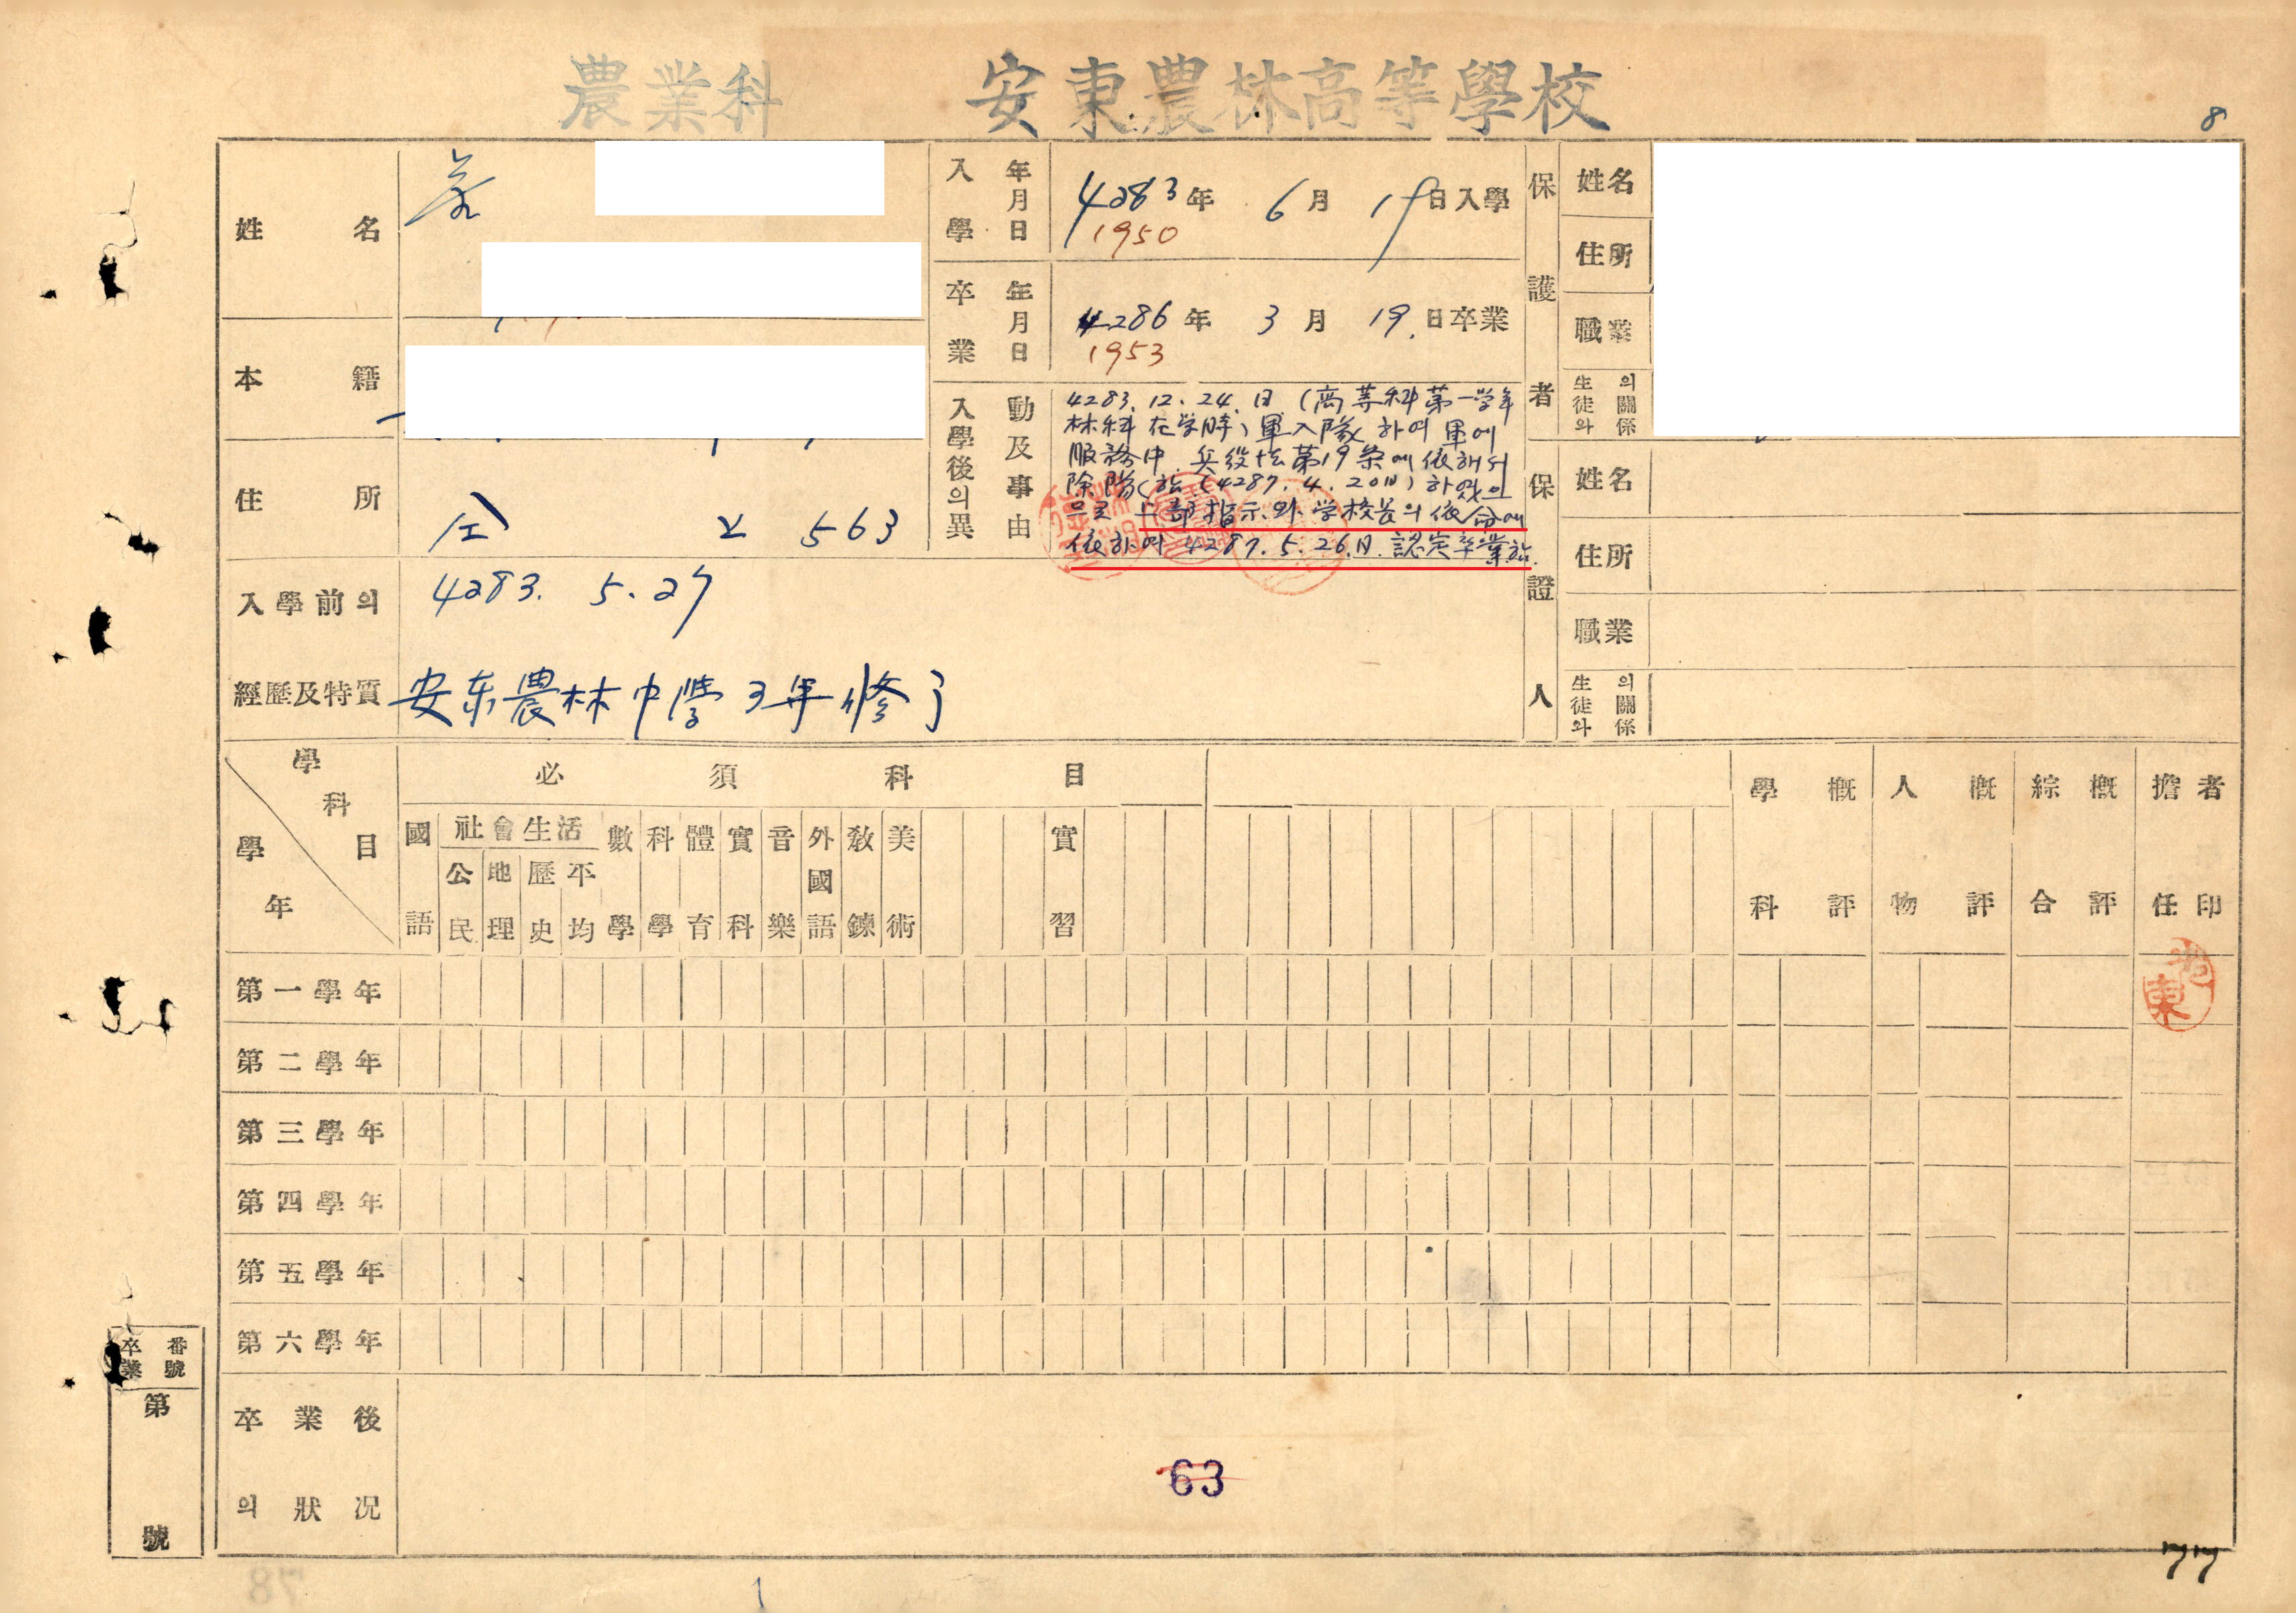 農業科 安東農林高等學校
8
姓名
本籍
住所
563
入學前의
經歷及特質
4283. 5. 27
安东農林中學 3年 修了
入學 年月日
4283年 6月 19日入學
1950
卒業 年月日
4286年 3月 19.日卒業
1953
入學後의異動及事由
4283. 12. 24. 日 (高等科 第一学年
林科 在学時) 軍入隊 하여 軍에
服務中. 兵役法 第19条에 依해서
除隊(4287. 4. 20日) 하였으
므로 上部指示와 学校長의 依命에
依하여 4287. 5. 26. 日. 認定卒業함.
保護者
姓名
住所
職業
生徒와의關係
保證人
姓名
住所
職業
生徒와의關係
學科目
學年
必須科目
國語
社會生活
公民
地理
歷史
平均
數學
科學
體育
實科
音樂
外國語
敎鍊
美術
實習
學科槪評
人物槪評
綜合槪評
擔任者印
東
第一學年
第二學年
第三學年
第四學年
第五學年
第六學年
卒業後
의狀況
63
卒業番號
第
號
77
78